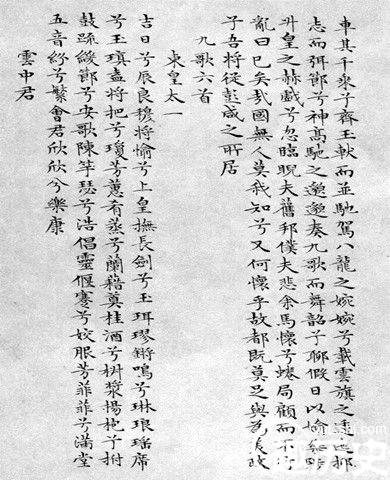 車其千乘兮齊玉軑而並馳駕八龍之婉婉兮載雲旗之逶迤抑
志而弭節兮神高馳之邈邈奏九歌而舞韶兮聊假日以媮樂陟
升皇之赫戲兮忽臨睨夫舊鄉僕夫悲余馬懷兮蜷局顧而不行
亂曰已矣哉國無人莫我知兮又何懷乎故都既莫足與為美政
兮吾將從彭咸之所居
九歌六首
東皇太一
吉日兮辰良穆將愉兮上皇撫長劍兮玉珥璆鏘鳴兮琳琅瑤席
兮玉瑱盍將把兮瓊芳蕙肴蒸兮蘭藉奠桂酒兮椒漿揚枹兮拊
鼓疏緩節兮安歌陳竽瑟兮浩倡靈偃蹇兮姣服芳菲菲兮滿堂
五音紛兮繁會君欣欣兮樂康
雲中君